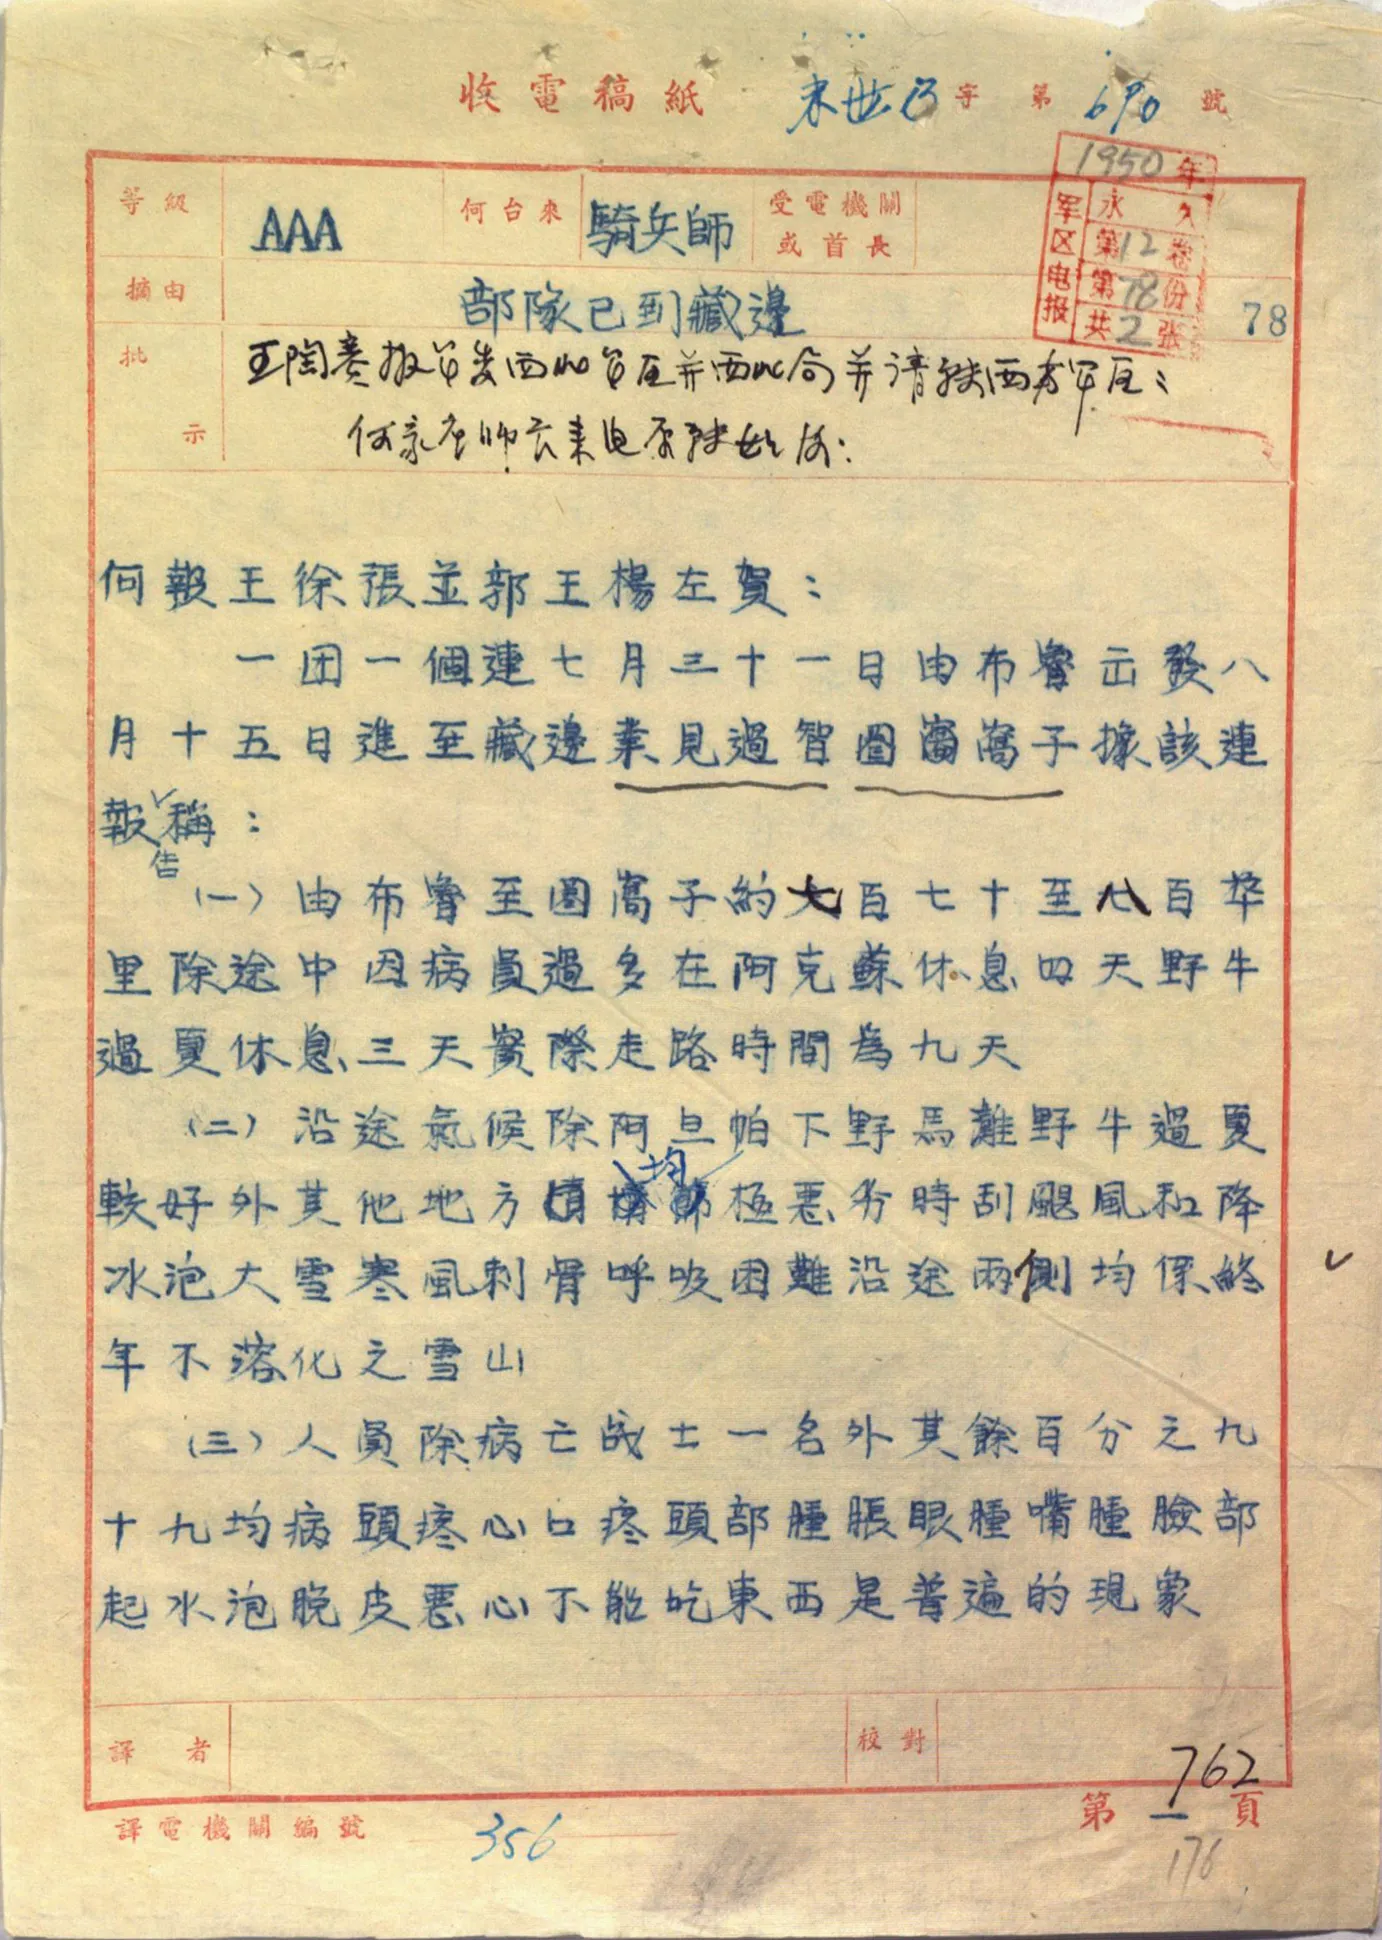 收電稿紙 末世 字 第 690 號
1950年
军区电报
永久
第12卷
第78份
共2张
78
等級 AAA 何台來 騎兵師 受電機關或首長
摘由 部隊已到藏邊
批示
何報王徐張並郭王楊左賀：
一团一個連七月三十一日由布魯出發八
月十五日進至藏邊業見過智圖窩子據該連
報告稱：
(一)由布魯至圖窩子約七百七十至八百华
里除途中因病員過多在阿克蘇休息四天野牛
過夏休息三天實際走路時間為九天
(二)沿途氣候除阿旦帕下野馬灘野牛過夏
較好外其他地方均極惡劣時刮颶風和降
冰泡大雪寒風刺骨呼吸困難沿途兩側均係終
年不溶化之雪山
(三)人員除病亡战士一名外其餘百分之九
十九均病頭疼心口疼頭部腫脹眼腫嘴腫臉部
起水泡脫皮惡心不能吃東西是普遍的現象
譯者 校對
762
譯電機關編號 356 第一頁
176